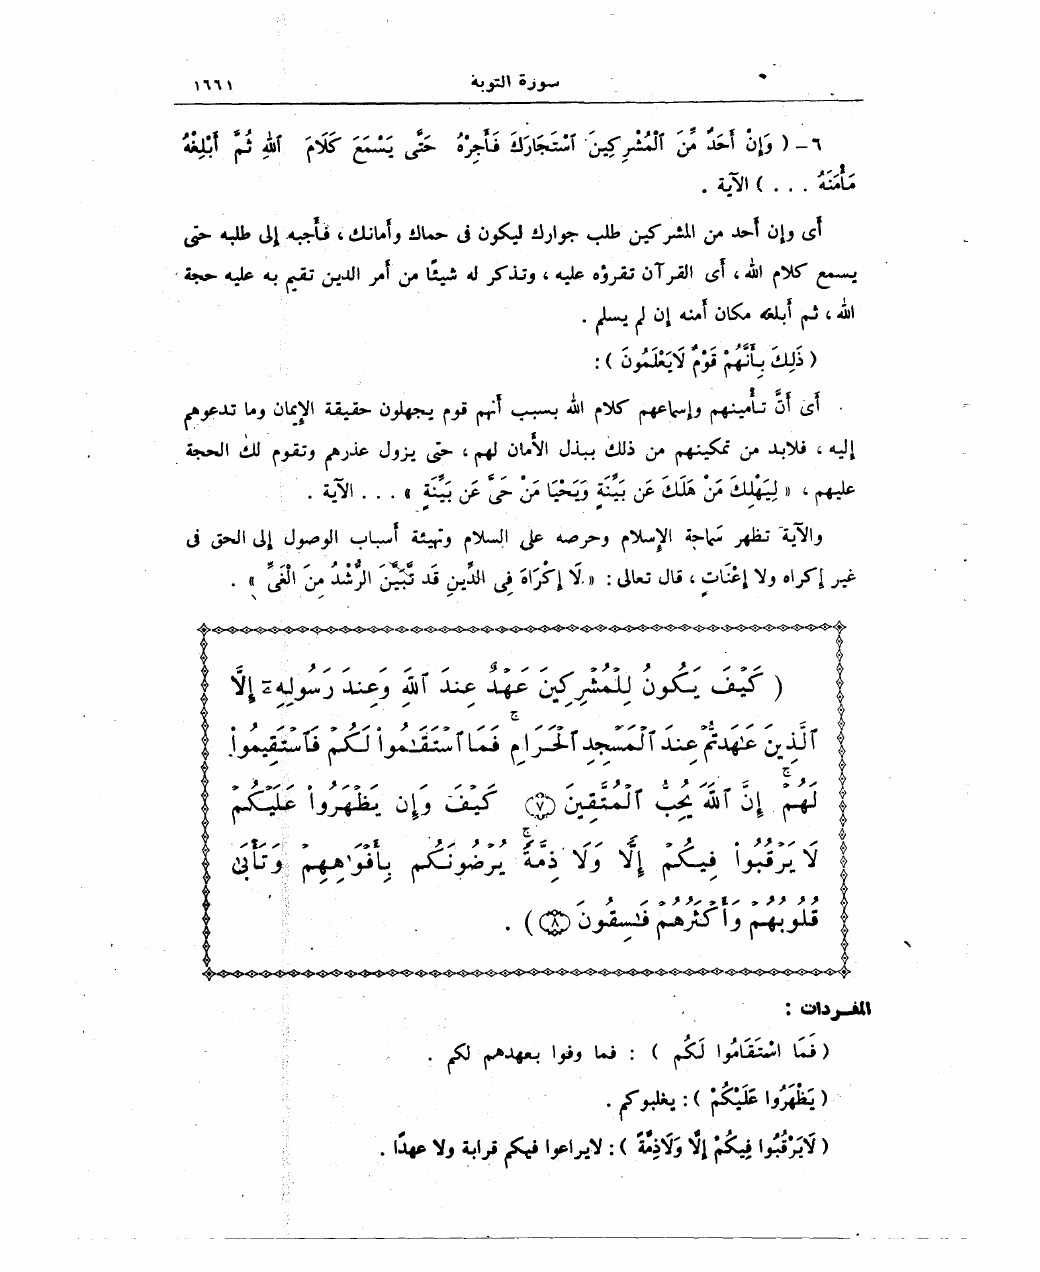 سورة التوبة ١٦٦١
٦ – ( وَإِنْ أَحَدٌ مِّنَ ٱلْمُشْرِكِينَ ٱسْتَجَارَكَ فَأَجِرْهُ حَتَّى يَسْمَعَ كَلَامَ ٱللهِ ثُمَّ أَبْلِغْهُ
مَأْمَنَهُ . . . ) الآية .
أى وإن أحد من المشركين طلب جوارك ليكون فى حماك وأمانك ، فأجبه إلى طلبه حتى
يسمع كلام الله ، أى القرآن تقرؤه عليه ، وتذكر له شيئًا من أمر الدين تقيم به عليه حجة
الله ، ثم أبلغه مكان أمنه إن لم يسلم .
( ذَٰلِكَ بِأَنَّهُمْ قَوْمٌ لَايَعْلَمُونَ ) :
أى أنَّ تأمينهم وإسماعهم كلام الله بسبب أنهم قوم يجهلون حقيقة الإيمان وما تدعوهم
إليه ، فلابد من تمكينهم من ذلك ببذل الأمان لهم ، حتى يزول عذرهم وتقوم لك الحجة
عليهم ، « لِيَهْلِكَ مَنْ هَلَكَ عَن بَيِّنَةٍ وَيَحْيَا مَنْ حَىَّ عَن بَيِّنَةٍ » . . . الآية .
والآية تظهر سماحة الإسلام وحرصه على السلام وتهيئة أسباب الوصول إلى الحق فى
غير إكراه ولا إعْنَاتٍ ، قال تعالى : « لَا إِكْرَاهَ فِى الدِّينِ قَد تَّبَيَّنَ الرُّشْدُ مِنَ الْغَىِّ » .
( كَيْفَ يَكُونُ لِلْمُشْرِكِينَ عَهْدٌ عِندَ ٱللَّهِ وَعِندَ رَسُولِهِۦٓ إِلَّا
ٱلَّذِينَ عَـٰهَدتُّمْ عِندَ ٱلْمَسْجِدِ ٱلْحَرَامِ ۖ فَمَا ٱسْتَقَـٰمُوا۟ لَكُمْ فَٱسْتَقِيمُوا۟
لَهُمْ ۚ إِنَّ ٱللَّهَ يُحِبُّ ٱلْمُتَّقِينَ ﴿٧﴾ كَيْفَ وَإِن يَظْهَرُوا۟ عَلَيْكُمْ
لَا يَرْقُبُوا۟ فِيكُمْ إِلًّا وَلَا ذِمَّةً ۚ يُرْضُونَكُم بِأَفْوَٰهِهِمْ وَتَأْبَىٰ
قُلُوبُهُمْ وَأَكْثَرُهُمْ فَـٰسِقُونَ ﴿٨﴾ ) .
المفـردات :
( فَمَا اسْتَقَامُوا لَكُم ) : فما وفوا بعهدهم لكم .
( يَظْهَرُوا عَلَيْكُمْ ) : يغلبوكم .
( لَايَرْقُبُوا فِيكُمْ إِلًّا وَلَاذِمَّةً ) : لايراعوا فيكم قرابة ولا عهدًا .